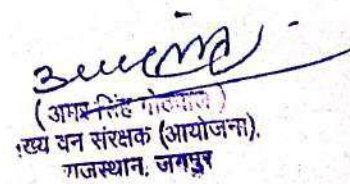 (अमर सिंह गोठवाल)
ख्य वन संरक्षक (आयोजना),
राजस्थान, जयपुर